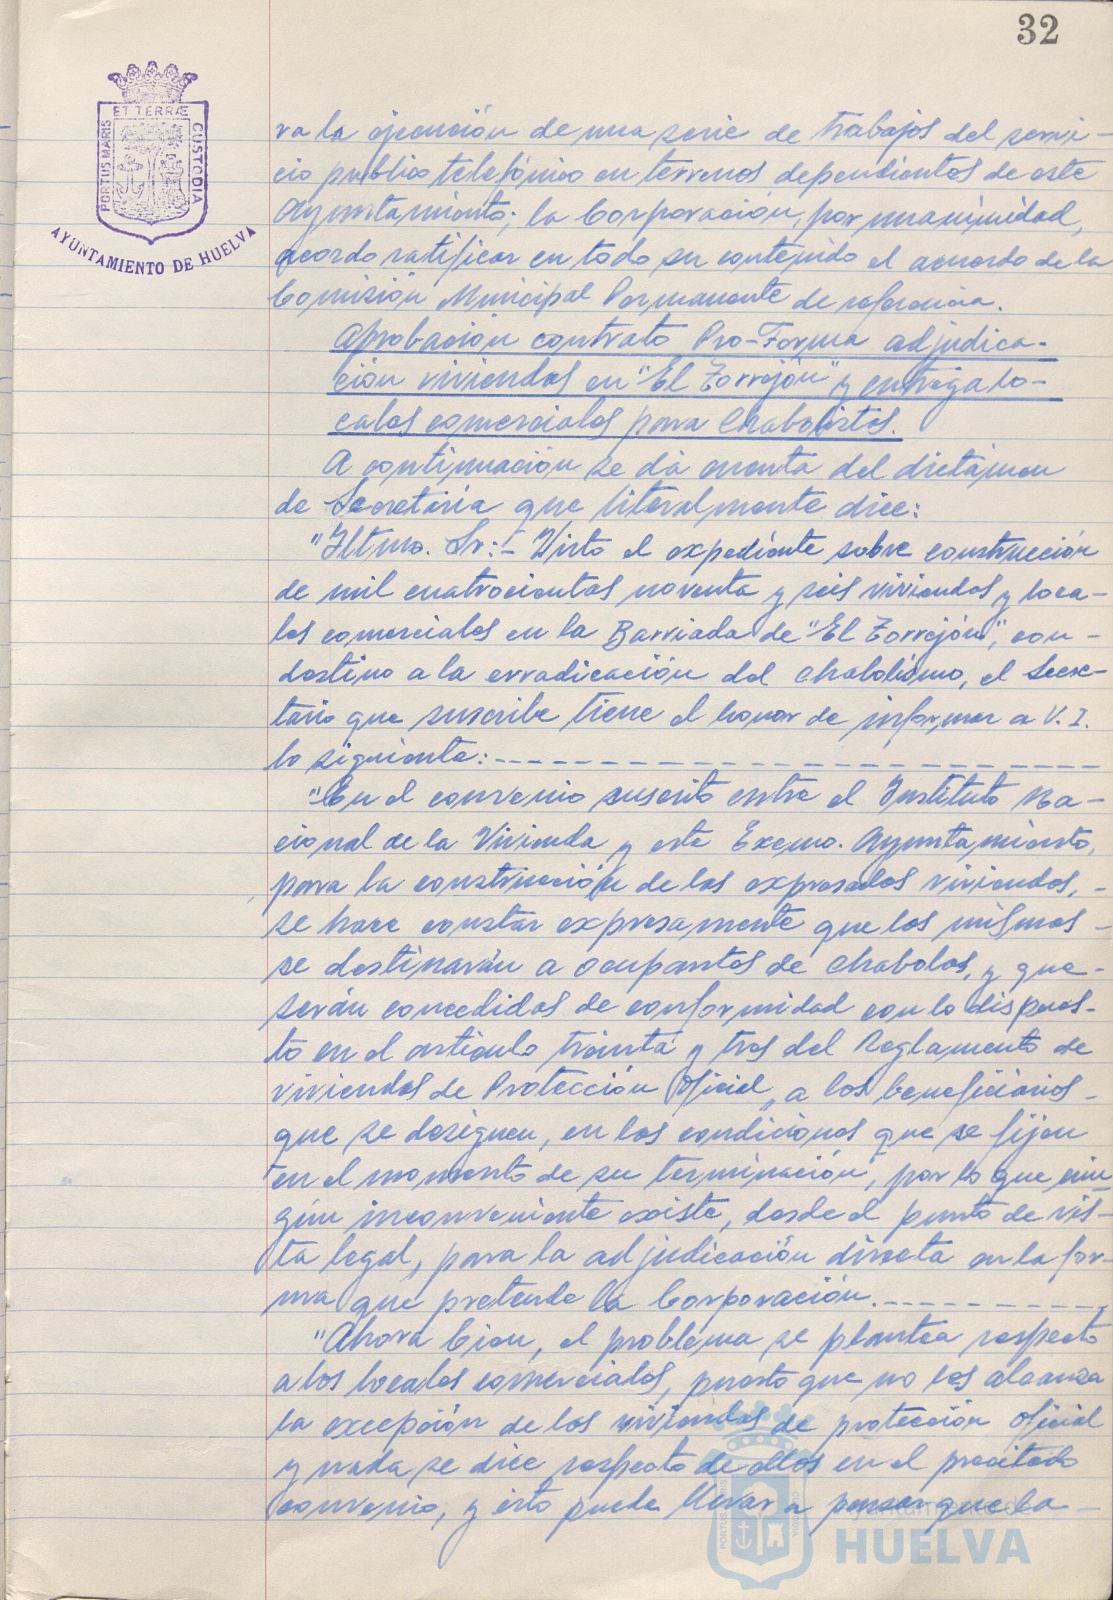 32
ET TERRÆ
PORTUS MARIS
CUSTODIA
AYUNTAMIENTO DE HUELVA
ra la ejecución de una serie de trabajos del servi-
cio público telefónico en terrenos dependientes de este
Ayuntamiento; la Corporación, por unanimidad,
acordo ratificar en todo su contenido el acuerdo de la
Comisión Municipal Permanente de referencia.
Aprobación contrato Pro-Forma adjudica-
ción viviendas en "El Torrejón" y entrega lo-
cales comerciales para Chabolistas.
A continuación se dá cuenta del dictamen
de Secretaria que literalmente dice:
"Iltmo. Sr:- Visto el expediente sobre construcción
de mil cuatrocientas noventa y seis viviendas y loca-
les comerciales en la Barriada de "El Torrejón", con-
destino a la erradicación del chabolismo, el Secre-
tario que suscribe tiene el honor de informar a V. I.
lo siguiente:-
"En el convenio suscrito entre el Instituto Na-
cional de la Vivienda y este Excmo. Ayuntamiento,
para la construcción de las expresadas viviendas, -
se hace constar expresamente que las mismas -
se destinarán a ocupantes de chabolas, y que-
serán concedidas de conformidad con lo dispues-
to en el articulo treinta y tres del Reglamento de
viviendas de Protección Oficial, a los beneficiarios -
que se designen, en las condiciones que se fijen
en el momento de su terminación, por lo que nin-
gún inconveniente existe, desde el punto de vis-
ta legal, para la adjudicación directa en la for-
ma que pretende la Corporación.-
"Ahora bien, el problema se plantea respecto
a los locales comerciales, puesto que no les alcanza
la excepción de las viviendas de protección oficial
y nada se dice respecto de ellos en el precitado
convenio, y esto puede llevar a pensar que la -
PORTUS MARIS
CUSTODIA
Ayuntamiento de
HUELVA